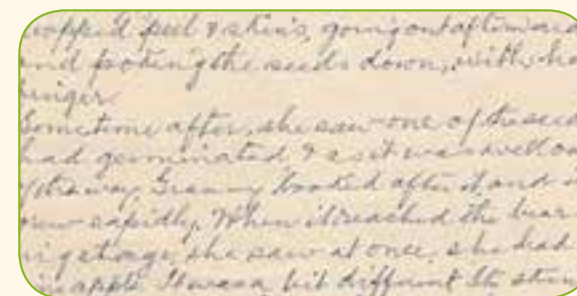 peel & skins, going out afterward
and poking the seeds down, with her
finger
Sometime after, she saw one of the seed
had germinated & as it was well out
of the way, Granny looked after it and it
grew rapidly. When it reached the bear
ing stage, she saw at once, she had
apple It was a bit different Its